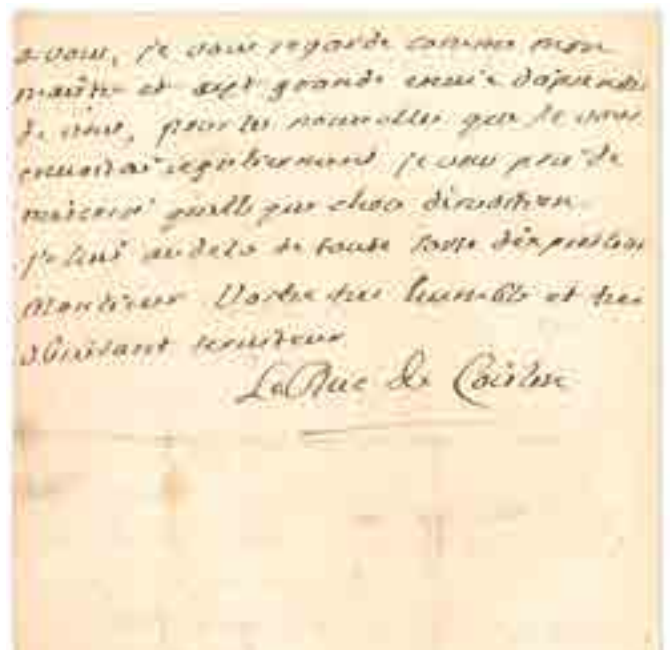 a vous, je vous regarde comme mon
maitre et ay grande envie daprendre
de vous, pour les nouvelles que je vous
regulierement je vous prie de
quelle que chose
je suis au dela de toute sorte dexpression
Monsieur Vostre tres humble et tres
obeissant serviteur
Le Duc de Coislin